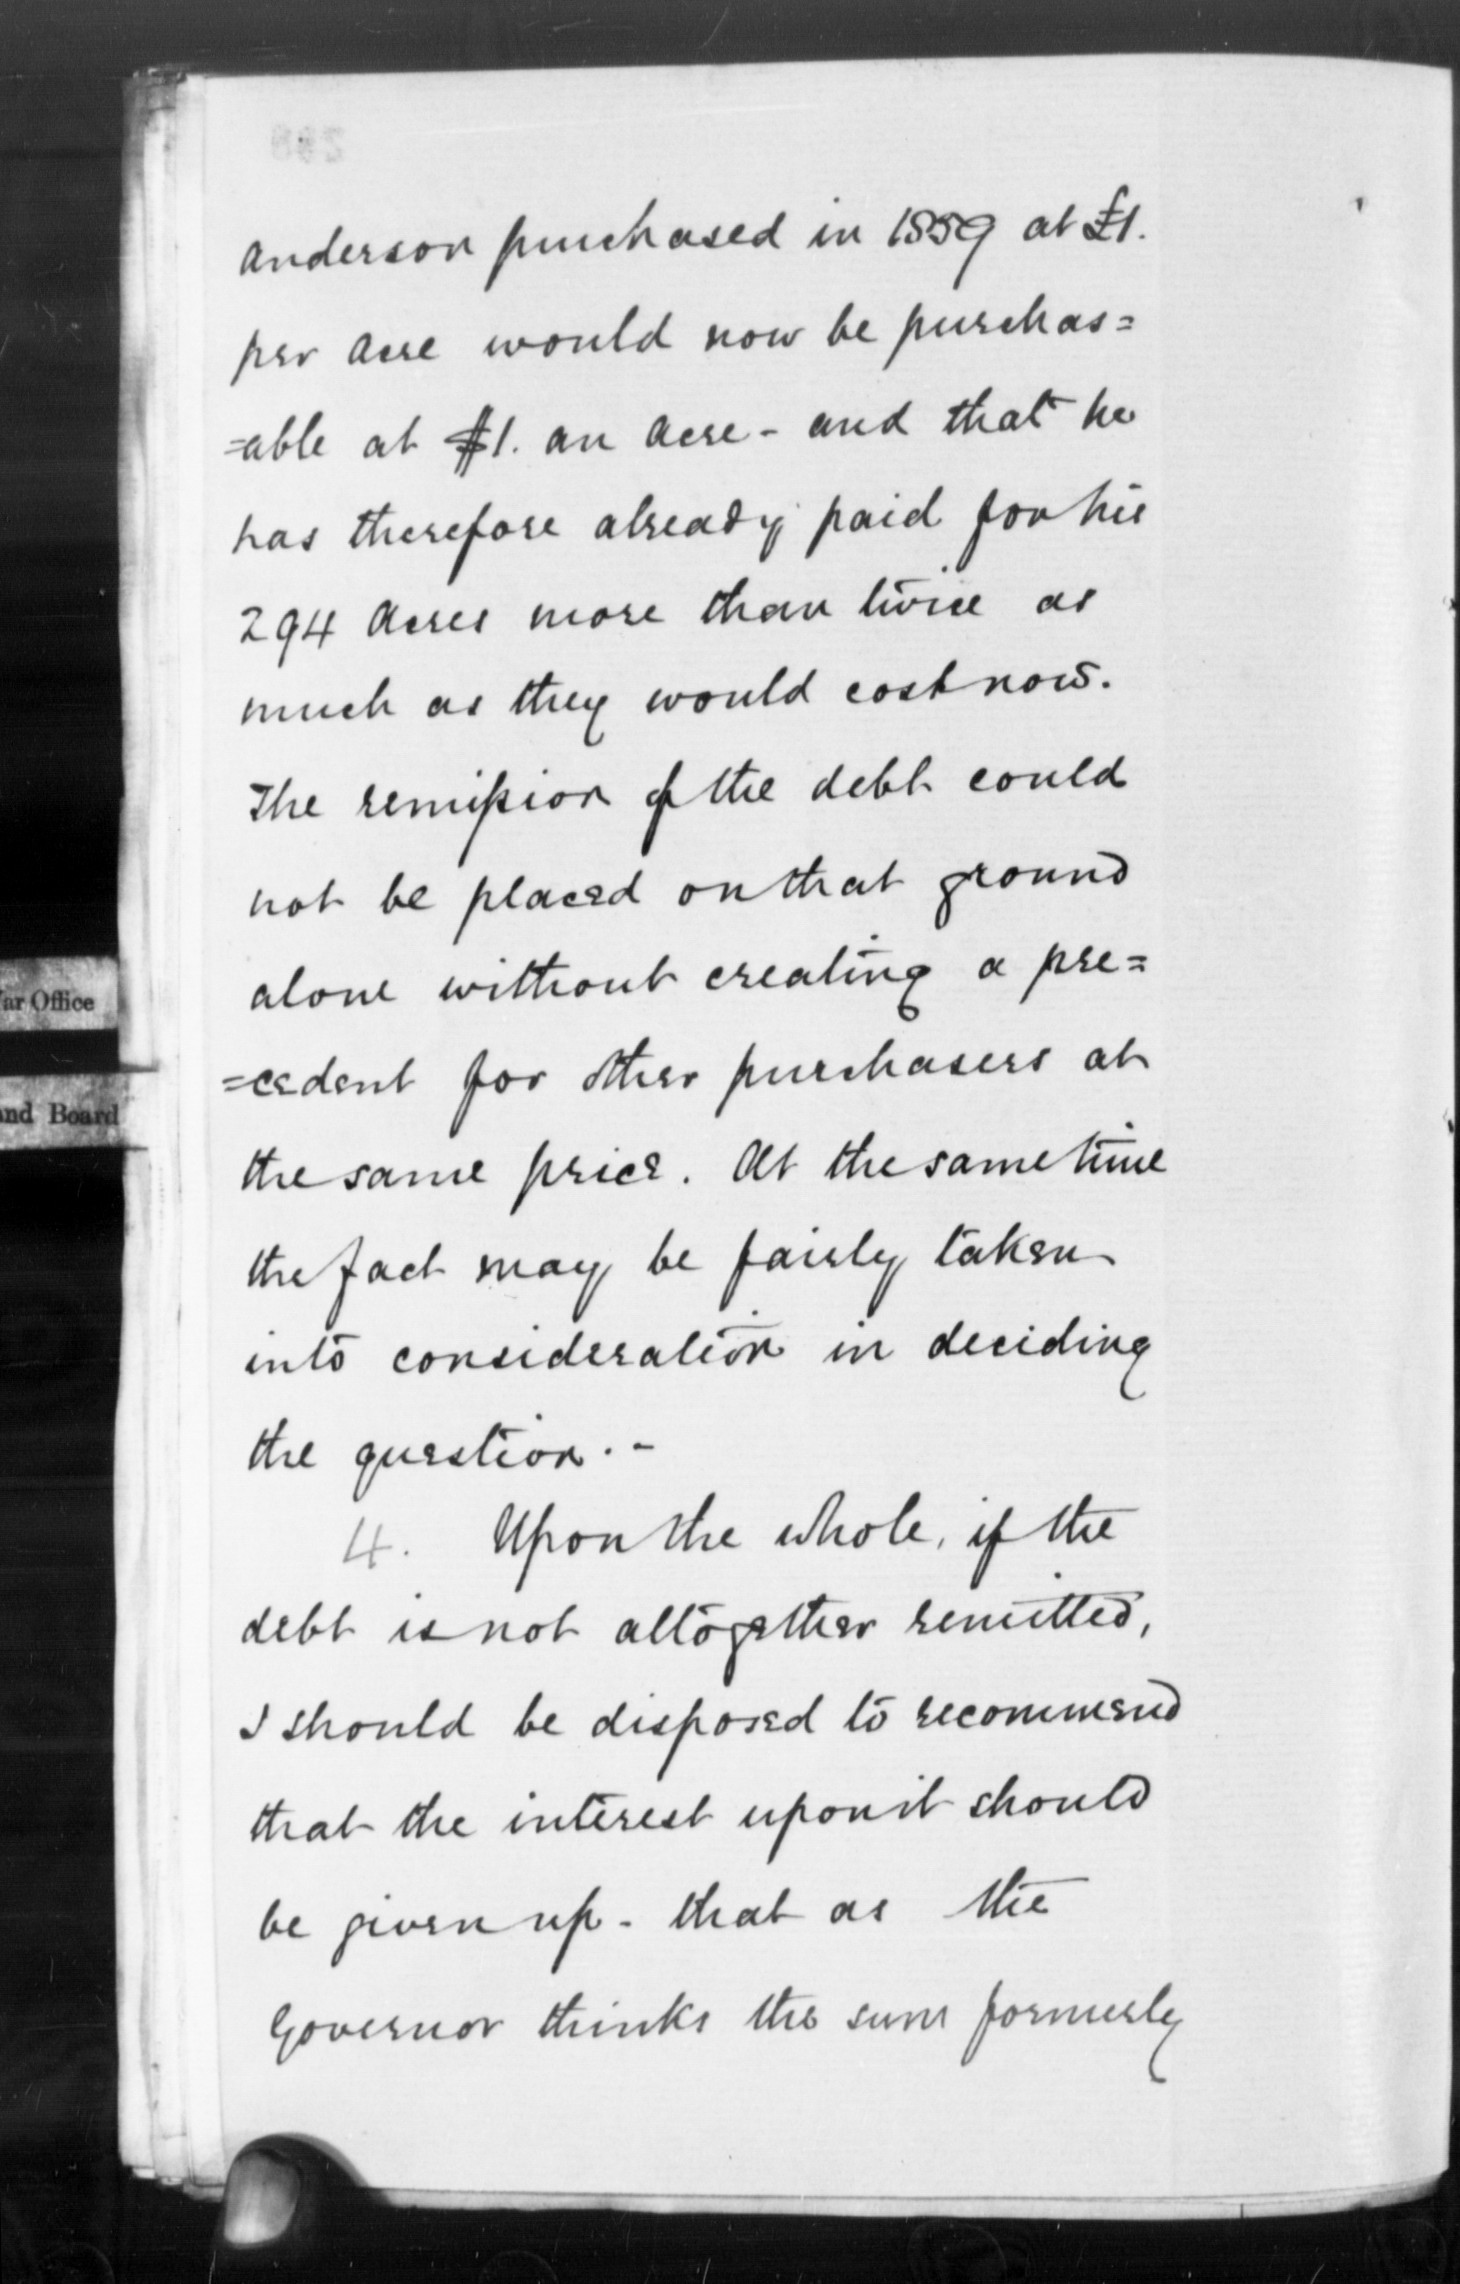 Anderson purchased in 1859 at £1.
per Acre would now be purchas=
=able at $1. an Acre - and that he
has therefore already paid for his
294 Acres more than twice as
much as they would cost now.
The remission of the debt could
not be placed on that ground
alone without creating a pre=
=cedent for other purchasers at
the same price. At the same time
the fact may be fairly taken
into consideration in deciding
the question. -
4. Upon the whole, if the
debt is not altogether remitted,
I should be disposed to recommend
that the interest upon it should
be given up - that as the
Governor thinks the sum formerly
ar Office
and Board